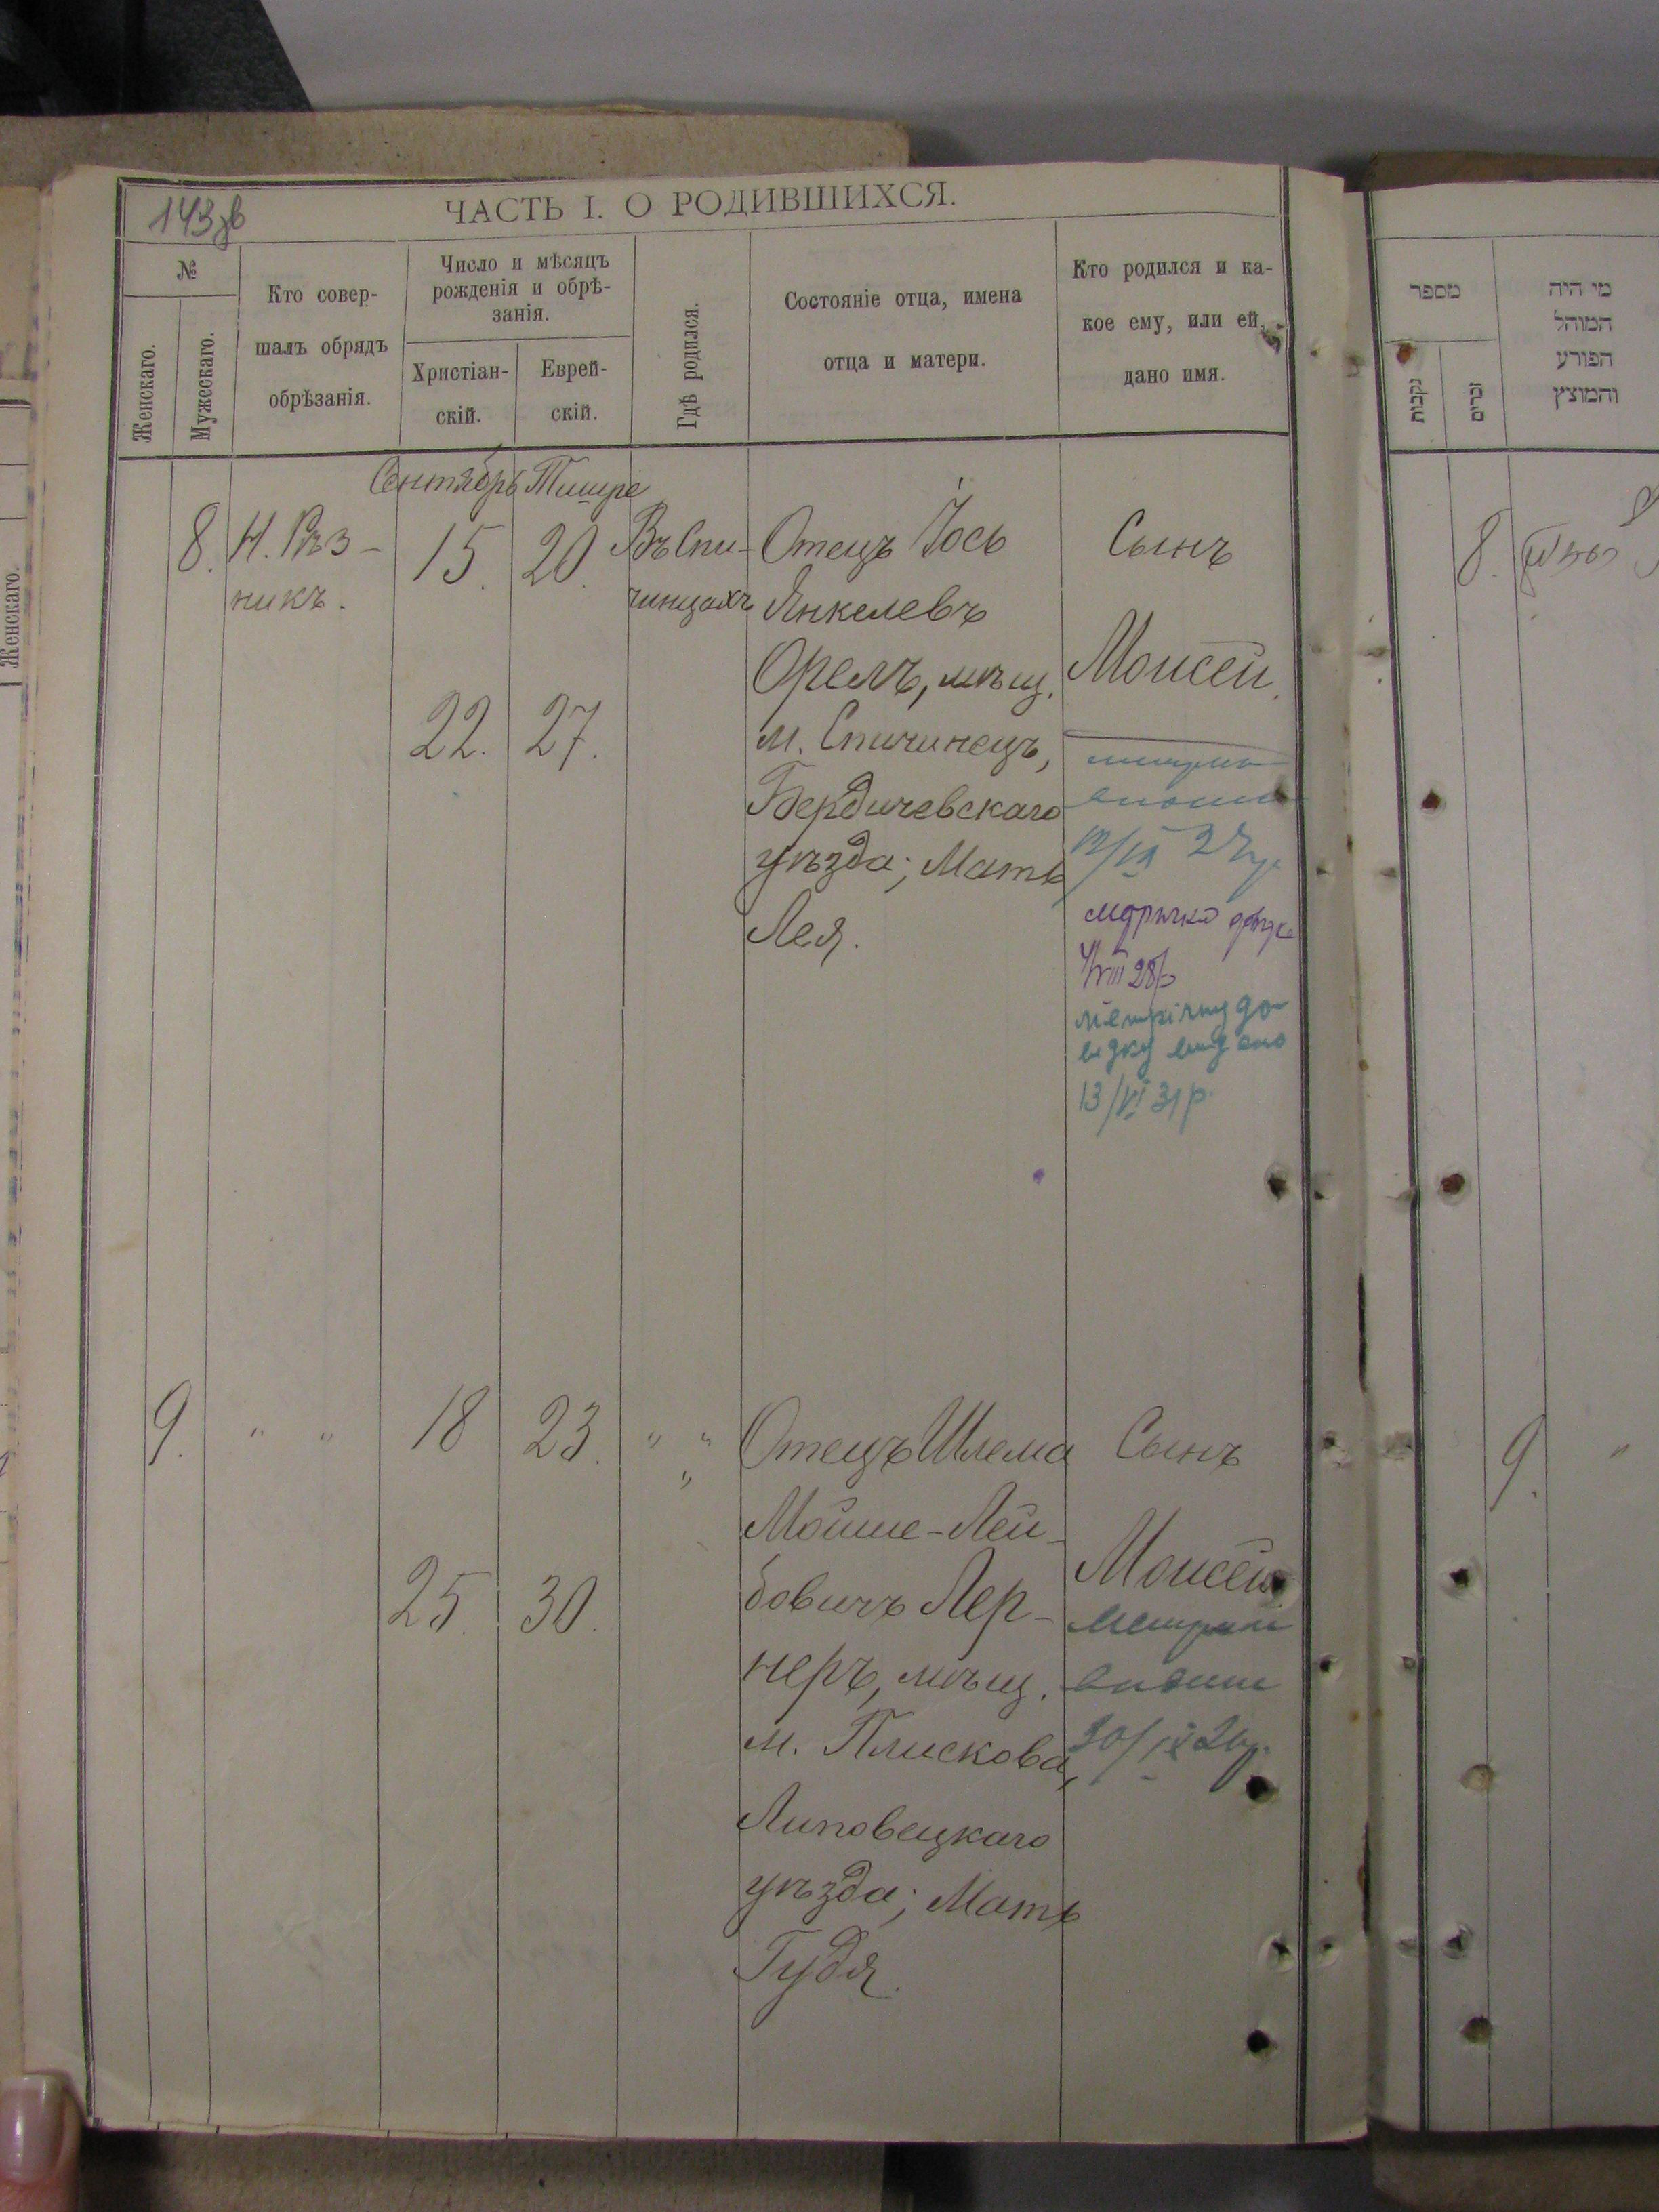 143зв
ЧАСТЬ I. О РОДИВШИХСЯ.
№
Женскаго.
Мужескаго.
Кто совер-
шалъ обрядъ
обрѣзанія.
Число и мѣсяцъ
рожденія и обрѣ-
занія.
Христіан-
скій.
Еврей-
скій.
Гдѣ родился.
Состояніе отца, имена
отца и матери.
Кто родился и ка-
кое ему, или ей,
дано имя.
Сентябрь Тишре
8. Н. Рѣз-
никъ.
15. 20.
22. 27.
Въ Спи-
чинцахъ
Отецъ Іось
Янкелевъ
Орелъ, мѣщ.
м. Спичинецъ,
Бердичевскаго
уѣзда; Мать
Лея.
Сынъ
Моисей.
28р
метрічну до-
відку видано
13/VI 31 р.
9. " " 18 23. " " "
25. 30.
Отецъ Шлема
Мойше-Лей-
бовичъ Лер-
неръ, мѣщ.
м. Плискова,
Липовецкаго
уѣзда; Мать
Гудя.
Сынъ
Моисей
30/IX 26р.
Женскаго.
מספר
נקבות
זכרים
מי היה
המוהל
הפורע
והמוצץ
8.
9. "